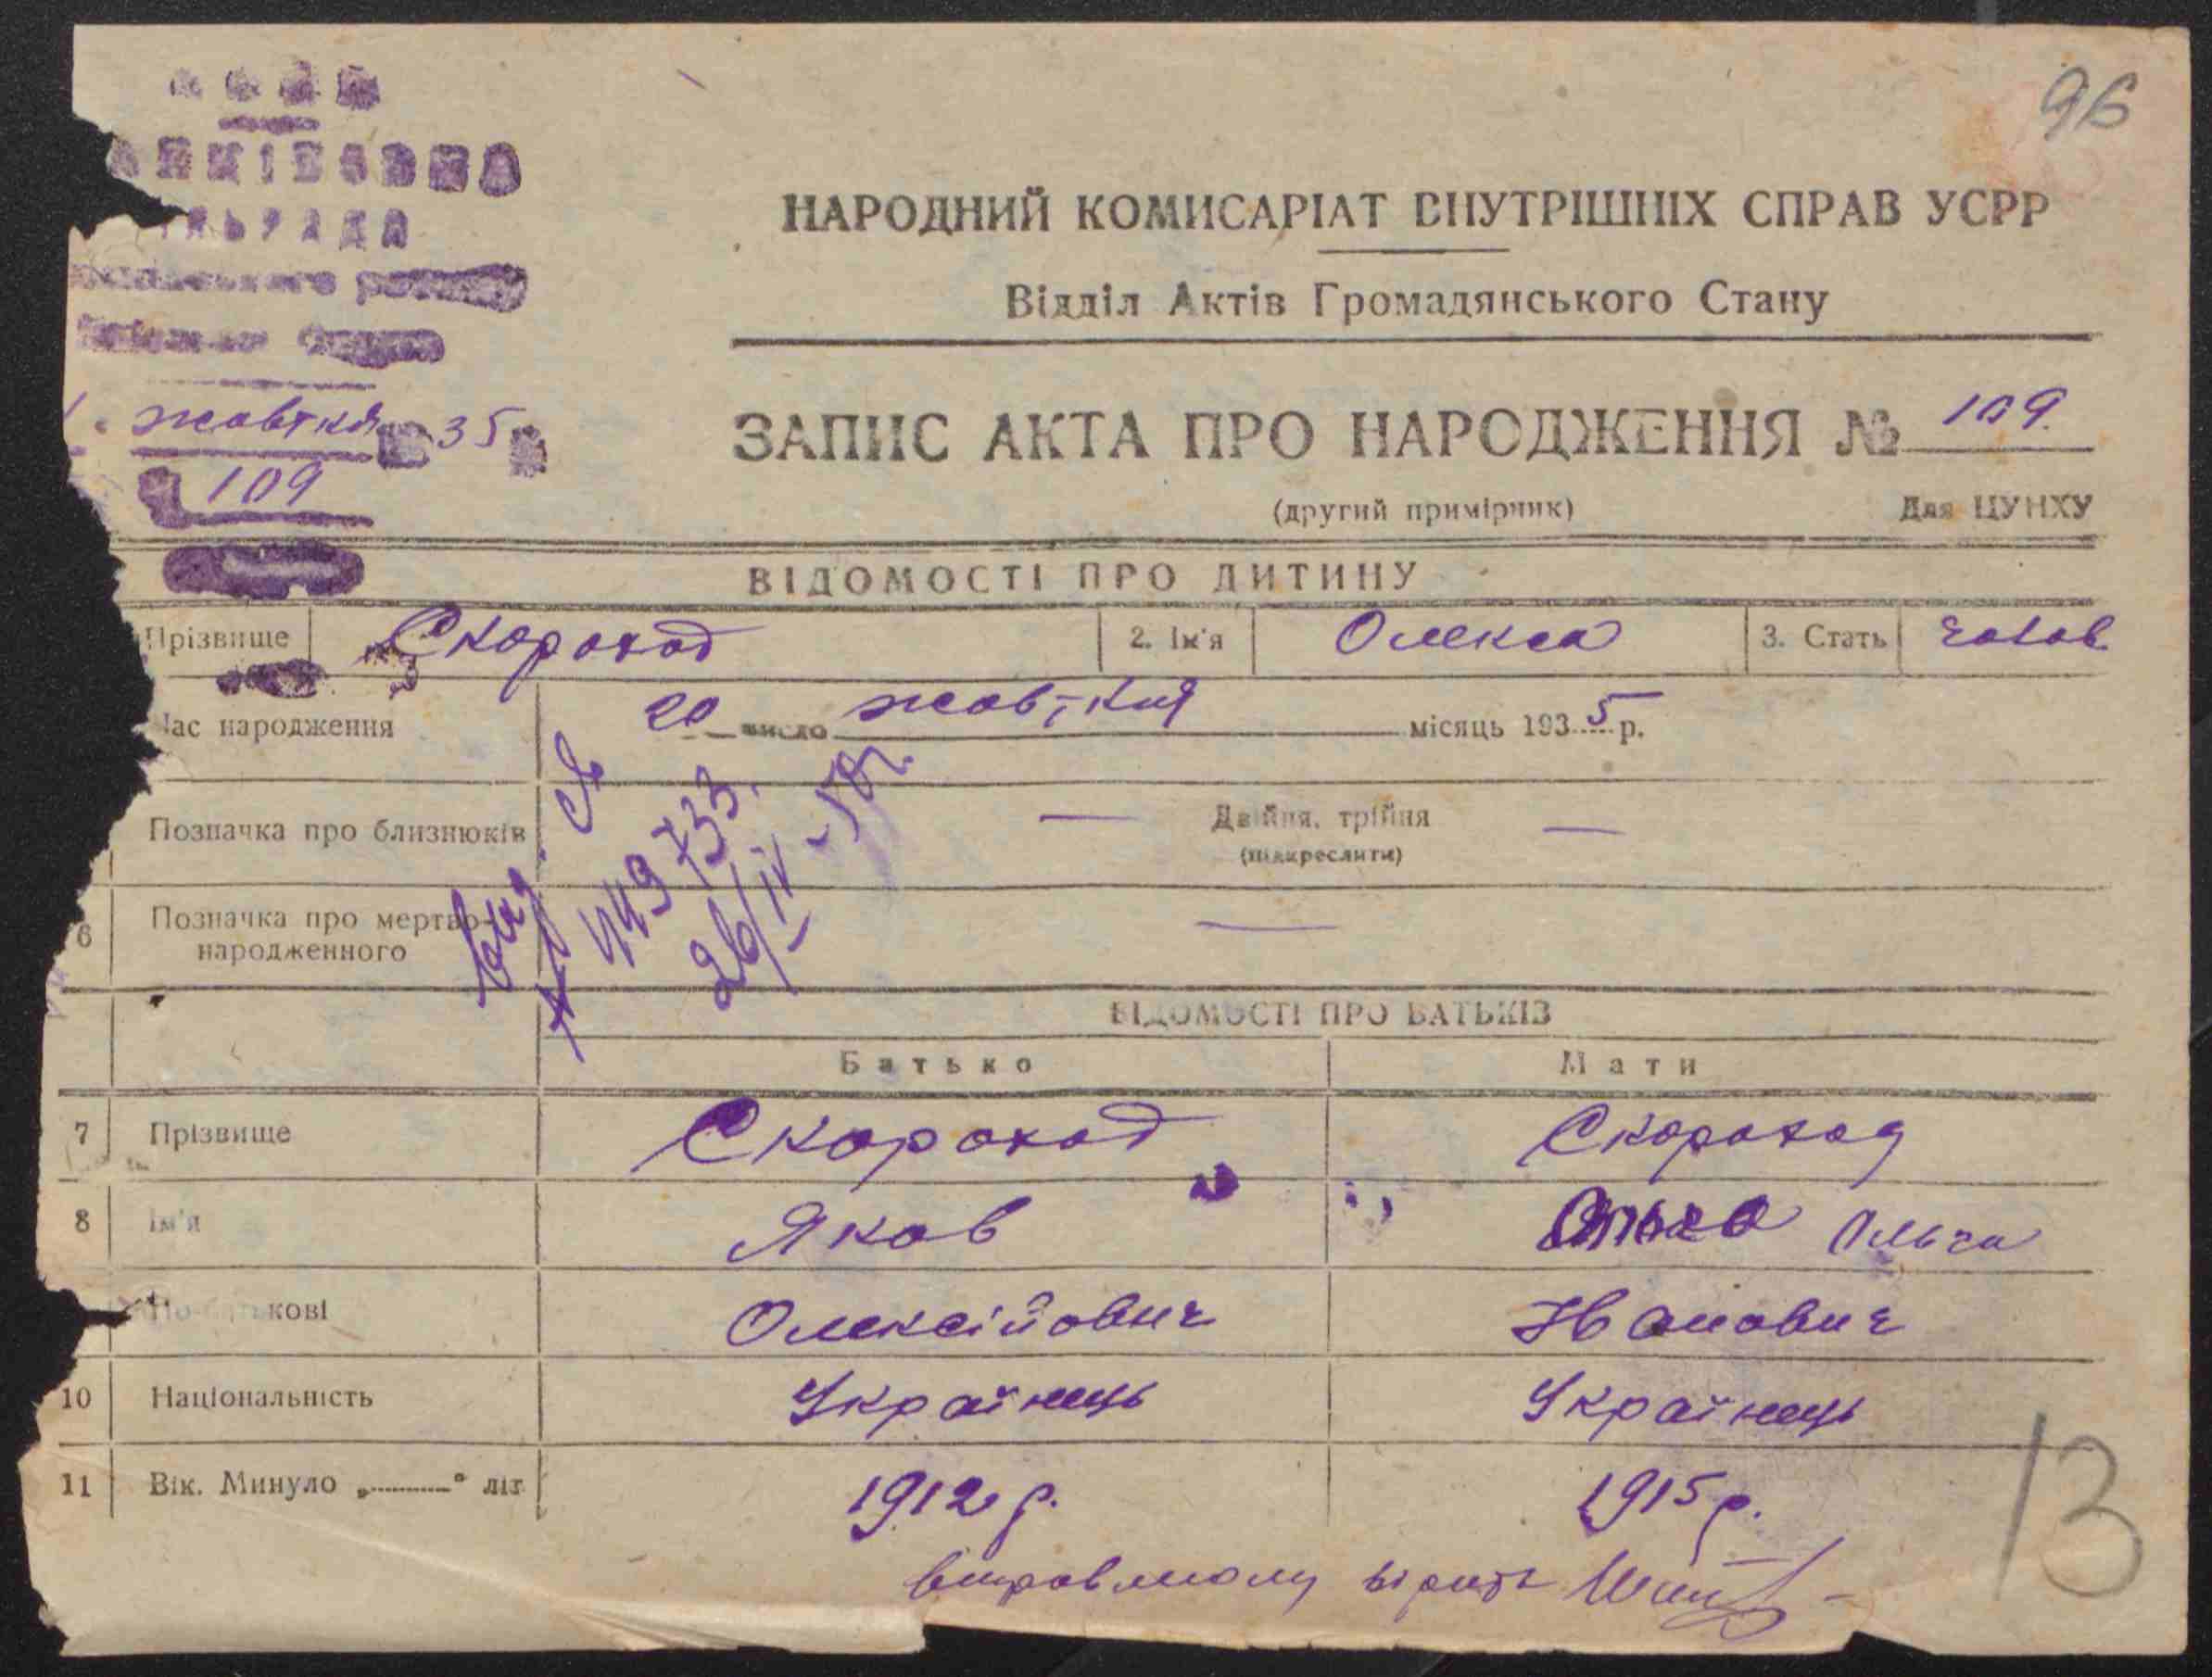 96
НАРОДНИЙ КОМИСАРІАТ ВНУТРІШНІХ СПРАВ УСРР
Відділ Актів Громадянського Стану
жовтня 35
109
ЗАПИС АКТА ПРО НАРОДЖЕННЯ № 109
(другий примірник) Для ЦУНХУ
ВІДОМОСТІ ПРО ДИТИНУ
Прізвище Скороход 2. Ім'я Олекса 3. Стать чолов
Час народження 20 число жовтня місяць 1935 р.
Позначка про близнюків — Двійня, трійня —
(підкреслити)
6 Позначка про мертво-
народженного —
449733
26/IV-
ВІДОМОСТІ ПРО БАТЬКІВ
Батько Мати
7 Прізвище Скороход Скороход
8 Ім'я Яков Ольга
По-батькові Олексійович Іванович
10 Національність Українець Українець
11 Вік. Минуло „ “ літ 1912 р. 1915 р.
13